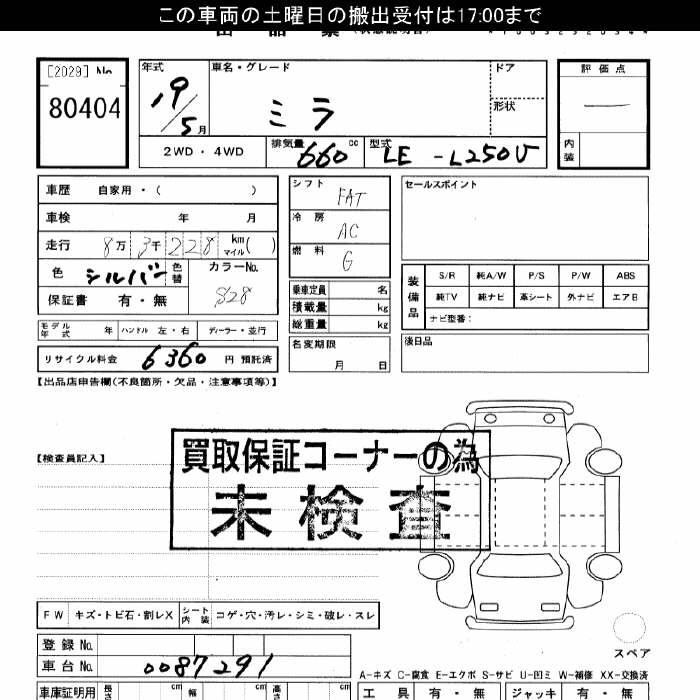 この車両の土曜日の搬出受付は17:00まで
[2029] No.
80404
年式
19/5月
車名・グレード
ミラ
ドア
形状
評価点
内装
2WD・4WD
排気量
660 cc
型式
LE-L250V
車歴 自家用・( )
車検 年 月
走行 8万3千228 km マイル( )
色 シルバー 色替
カラーNo.
S28
保証書 有・無
シフト FAT
冷房 AC
燃料 G
乗車定員 名
積載量 kg
総重量 kg
名変期限 月 日
セールスポイント
装備品
S/R 純A/W P/S P/W ABS
純TV 純ナビ 革シート 外ナビ エアB
ナビ型番:
後日品
モデル年式 年 ハンドル 左・右 ディーラー・並行
リサイクル料金 6360 円 預託済
【出品店申告欄(不良箇所・欠品・注意事項等)】
【検査員記入】
買取保証コーナーの為
未検査
FW キズ・トビ石・割レX シート内装 コゲ・穴・汚レ・シミ・破レ・スレ
スペア
登録No.
車台No. 0087291
A-キズ C-腐食 E-エクボ S-サビ U-凹ミ W-補修 XX-交換済
車庫証明用 長さ cm 幅 cm 高さ cm
工具 有・無 ジャッキ 有・無